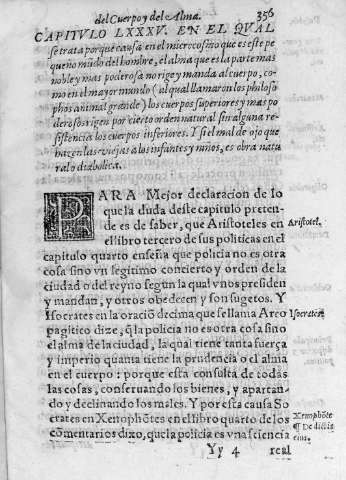 del Cuerpo y del Alma. 356
CAPITVLO LXXXV. EN EL QVAL
se trata porque causa en el microcosmo que es este pe
queño mūdo del hombre, el alma que es la parte mas
noble y mas poderosa no rige y manda al cuerpo, co-
mo en el mayor mundo (al qual llamaron los philoso
phos animal grande) los cuerpos superiores y mas po
derosos rigen por cierto orden natural sin alguna re-
sistencia los cuerpos inferiores. Y si el mal de ojo que
hazen las viejas a los infantes y niños, es obra natu
ral o diabolica.
PARA Mejor declaracion de lo
que la duda deste capitulo preten-
de es de saber, que Aristoteles en
el libro tercero de sus politicas en el
capitulo quarto enseña que policia no es otra
cosa sino vn legitimo concierto y orden de la
ciudad o del reyno segun la qual vnos presiden
y mandan, y otros obedecen y son sugetos. Y
Isocrates en la oraciō decima que se llama Areo
pagitico dize, q̄ la policia no es otra cosa sino
el alma de la ciudad, la qual tiene tanta fuerça
y imperio quanta tiene la prudencia o el alma
en el cuerpo: porque esta consulta de todas
las cosas, conseruando los bienes, y apartan-
do y declinando los males. Y por esta causa So
crates en Xenophōtes en el libro quarto de los
cōmentarios dixo, que la policia es vna sciencia
Yy 4 real
Aristotel.
Isocrates
Xenophōte
¶ De dictis